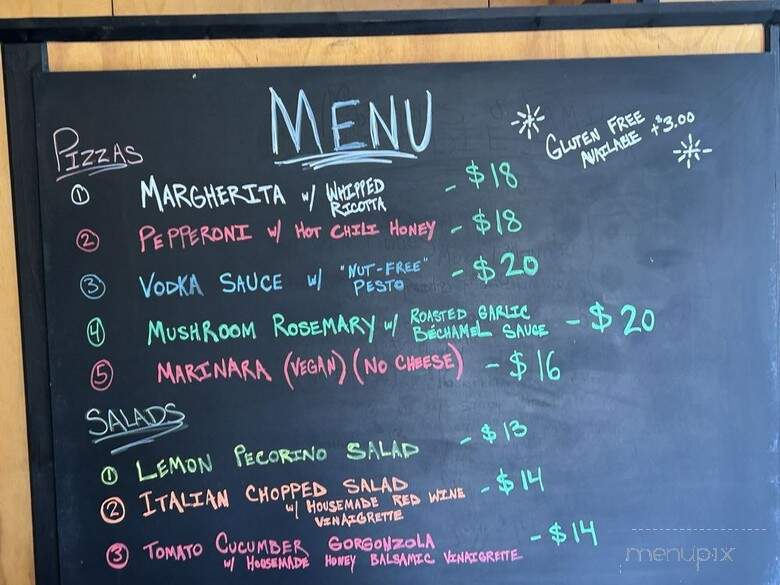 MENU
GLUTEN FREE
AVAILABLE +$3.00
PIZZAS
1 MARGHERITA w/ WHIPPED
RICOTTA - $18
2 PEPPERONI w/ HOT CHILI HONEY - $18
3 VODKA SAUCE w/ "NUT-FREE"
PESTO - $20
4 MUSHROOM ROSEMARY w/ ROASTED GARLIC
BÉCHAMEL SAUCE - $20
5 MARINARA (VEGAN) (NO CHEESE) - $16
SALADS
1 LEMON PECORINO SALAD - $13
2 ITALIAN CHOPPED SALAD - $14
w/ HOUSEMADE RED WINE
VINAIGRETTE
3 TOMATO CUCUMBER GORGONZOLA - $14
w/ HOUSEMADE HONEY BALSAMIC VINAIGRETTE
menupix